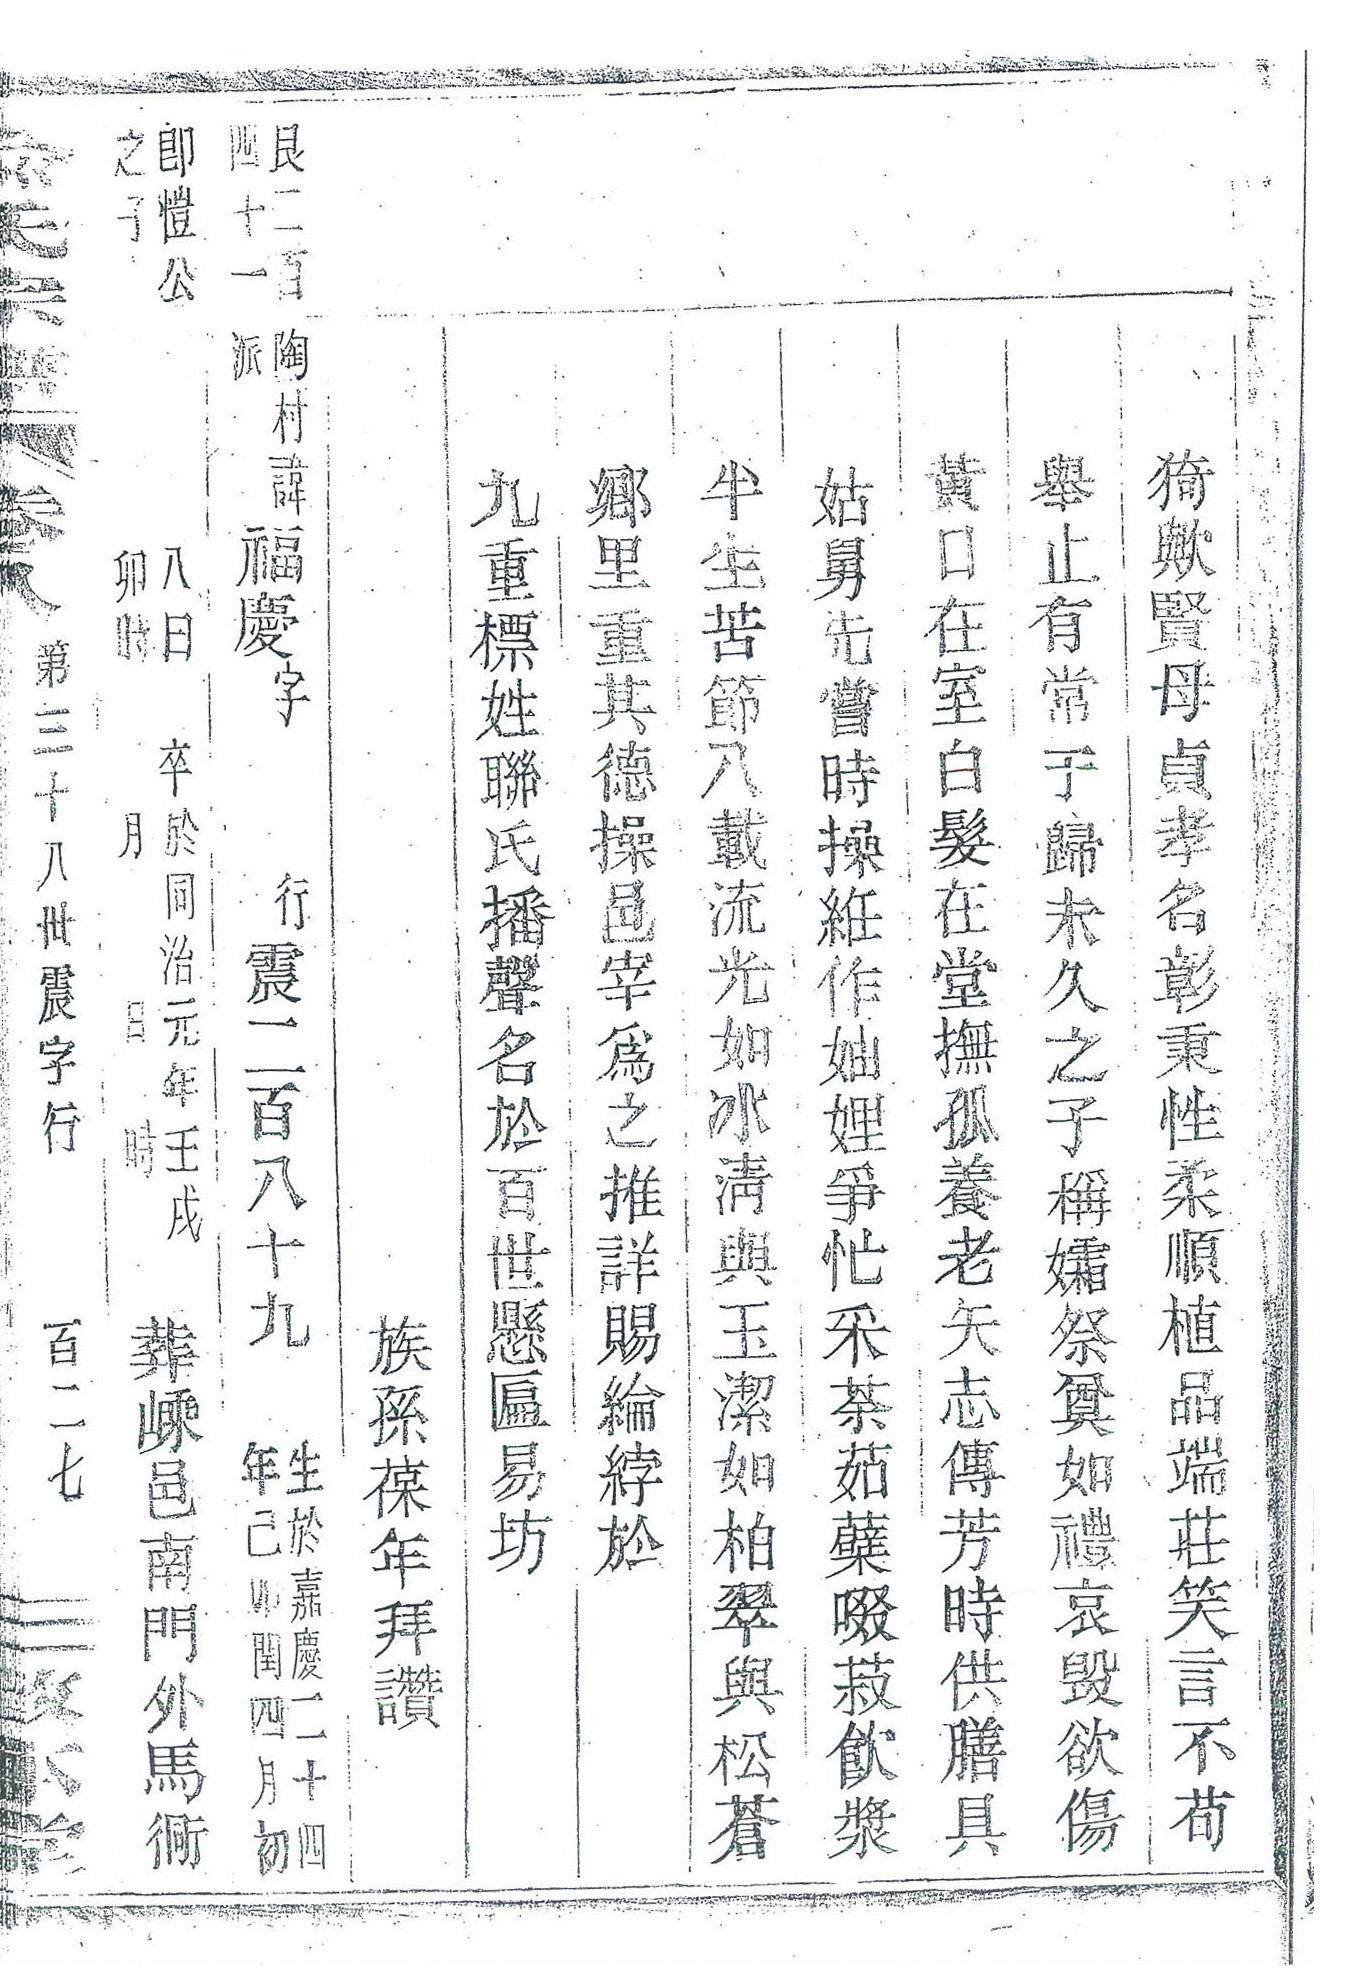 猗歟賢母貞孝名彰秉性柔順植品端莊笑言不苟
舉止有常于歸未久之子稱孀祭奠如禮哀毀欲傷
黃口在室白髮在堂撫孤養老矢志傳芳時供膳具
姑舅先嘗時操絍作妯娌爭忙采荼茹蘗啜菽飲漿
半生苦節八載流光如冰清與玉潔如柏翠與松蒼
鄉里重其德操邑宰爲之推詳賜綸綍於
九重標姓聯氏播聲名於百世懸匾易坊
族孫葆年拜讚
艮二百
四十一
陶村諱福慶字 行震二百八十九 生於嘉慶二十四
派 年己卯閏四月初
卽愷公
之子
八日 卒於同治元年壬戌
卯時 月 日 時
葬嵊邑南門外馬衕
卷八 第三十八世震字行 百二七